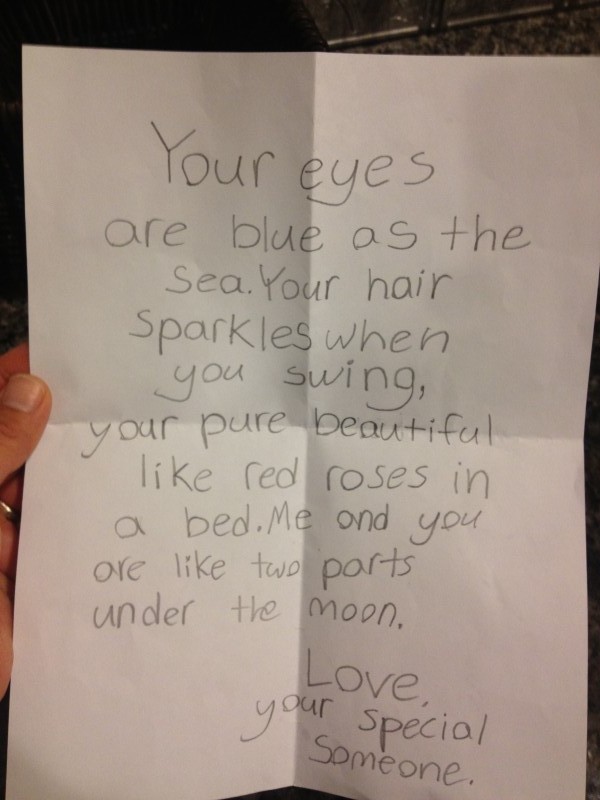 Your eyes
are blue as the
Sea. Your hair
Sparkles when
you swing,
your pure beautiful
like red roses in
a bed. Me and you
are like two parts
under the moon.
Love,
your special
Someone.